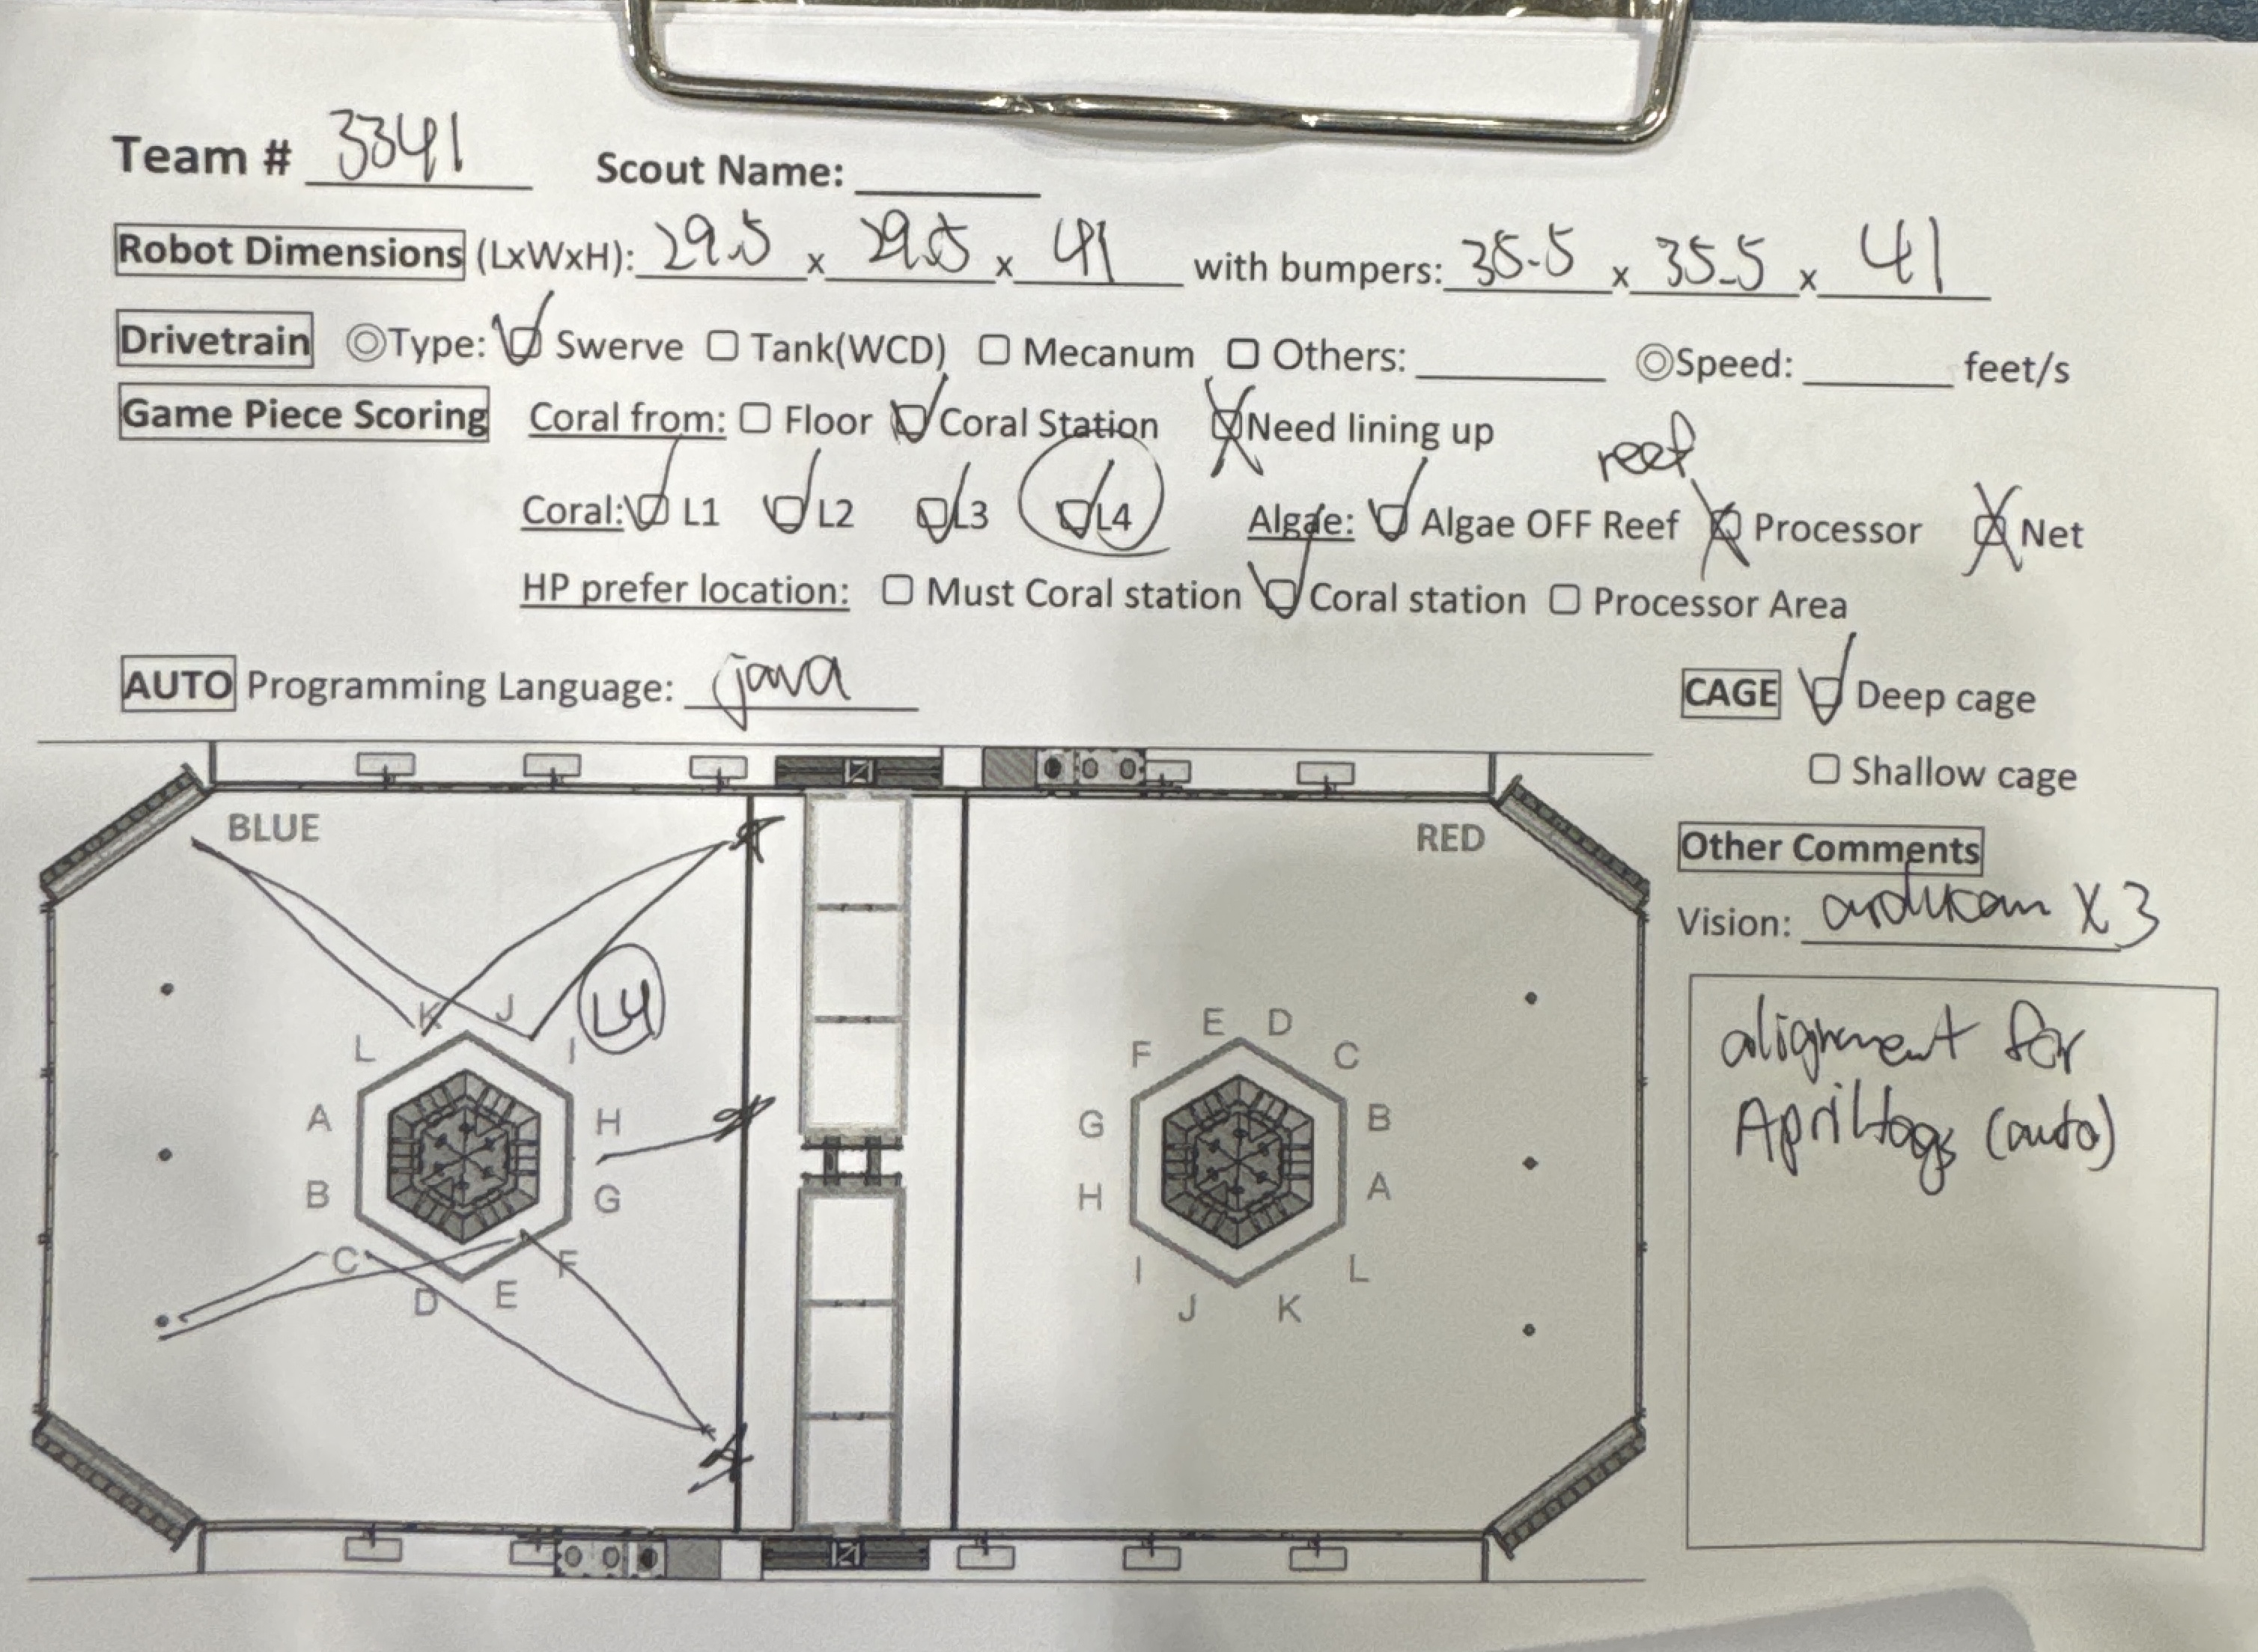 Team # 3341 Scout Name:
Robot Dimensions (LxWxH): 29.5 x 29.5 x 41 with bumpers: 35.5 x 35.5 x 41
Drivetrain ◎Type: ☑ Swerve ☐ Tank(WCD) ☐ Mecanum ☐ Others: ◎Speed: feet/s
Game Piece Scoring Coral from: ☐ Floor ☑ Coral Station ☒ Need lining up
reef
Coral: ☑ L1 ☑ L2 ☑ L3 ☑ L4 Algae: ☑ Algae OFF Reef ☒ Processor ☒ Net
HP prefer location: ☐ Must Coral station ☑ Coral station ☐ Processor Area
AUTO Programming Language: java
CAGE ☑ Deep cage
☐ Shallow cage
BLUE
RED
Other Comments
Vision: arducam X 3
alignment for
Apriltags (auto)
L4
K J
L I
A H
B G
C F
D E
E D
F C
G B
H A
I L
J K